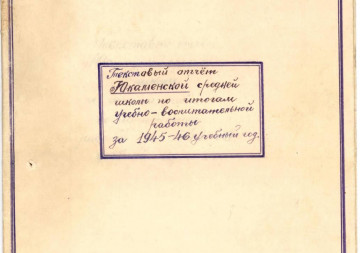 Текставый отчёт
Юкаменской средней
школы по итогам
учебно-воспитательной
работы
за 1945-46 учебный год.